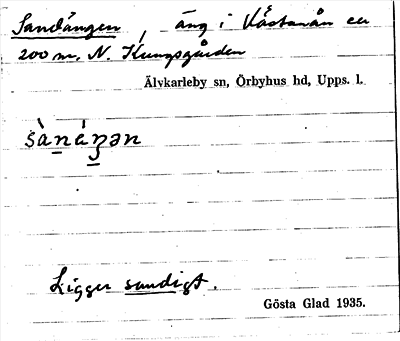 Sandängen, äng i Västanån ca
200 m. N. Kungsgården
Älvkarleby sn, Örbyhus hd, Upps. l.
Ligger sandigt.
Gösta Glad 1935.